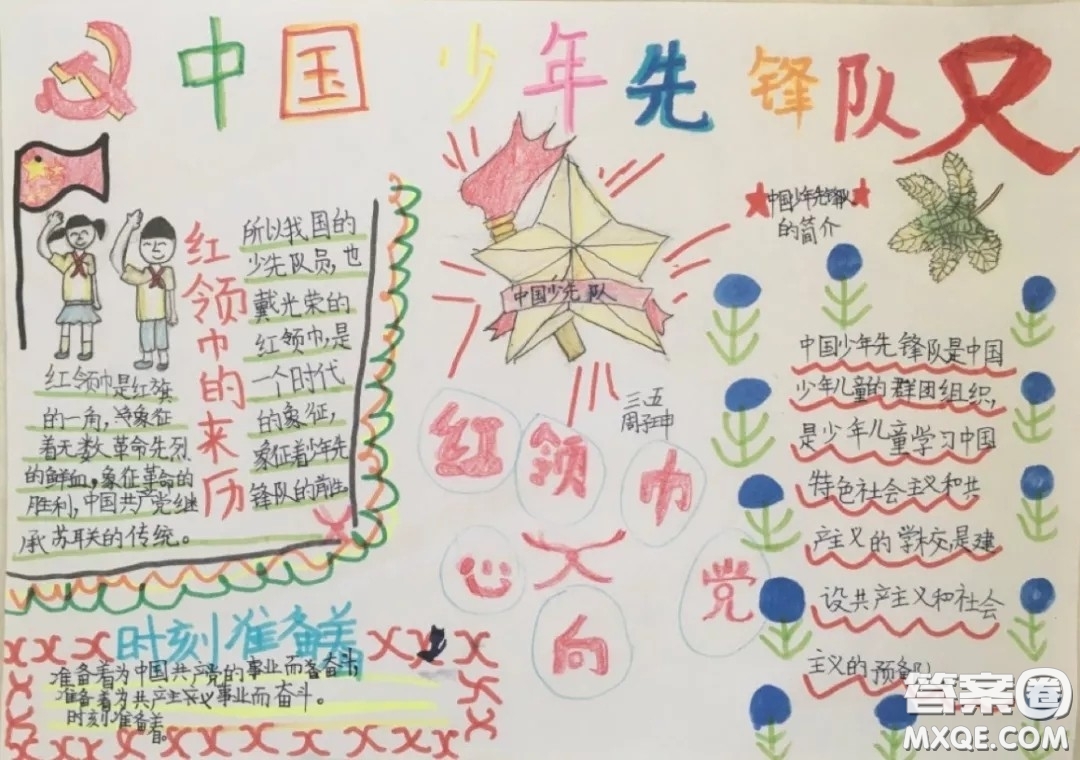 中国少年先锋队
红领巾的来历
红领巾是红旗
的一角,
着无数革命先烈
的鲜血,象征革命的
胜利,中国共产党继
承苏联的传统。
所以我国的
少先队员,也
戴光荣的
红领巾,是
一个时代
的象征,
象征着少年先
锋队的前
中国少先队
三、五
红领巾
心向党
中国少年先锋队
的简介
中国少年先锋队是中国
少年儿童的群团组织,
是少年儿童学习中国
特色社会主义和共
产主义的学校,是建
设共产主义和社会
主义的预备队
时刻准备着
准备着为中国共产党的事业而奋斗
准备着为共产主义事业而奋斗。
时刻准备着。
答案圈
MXQE.COM